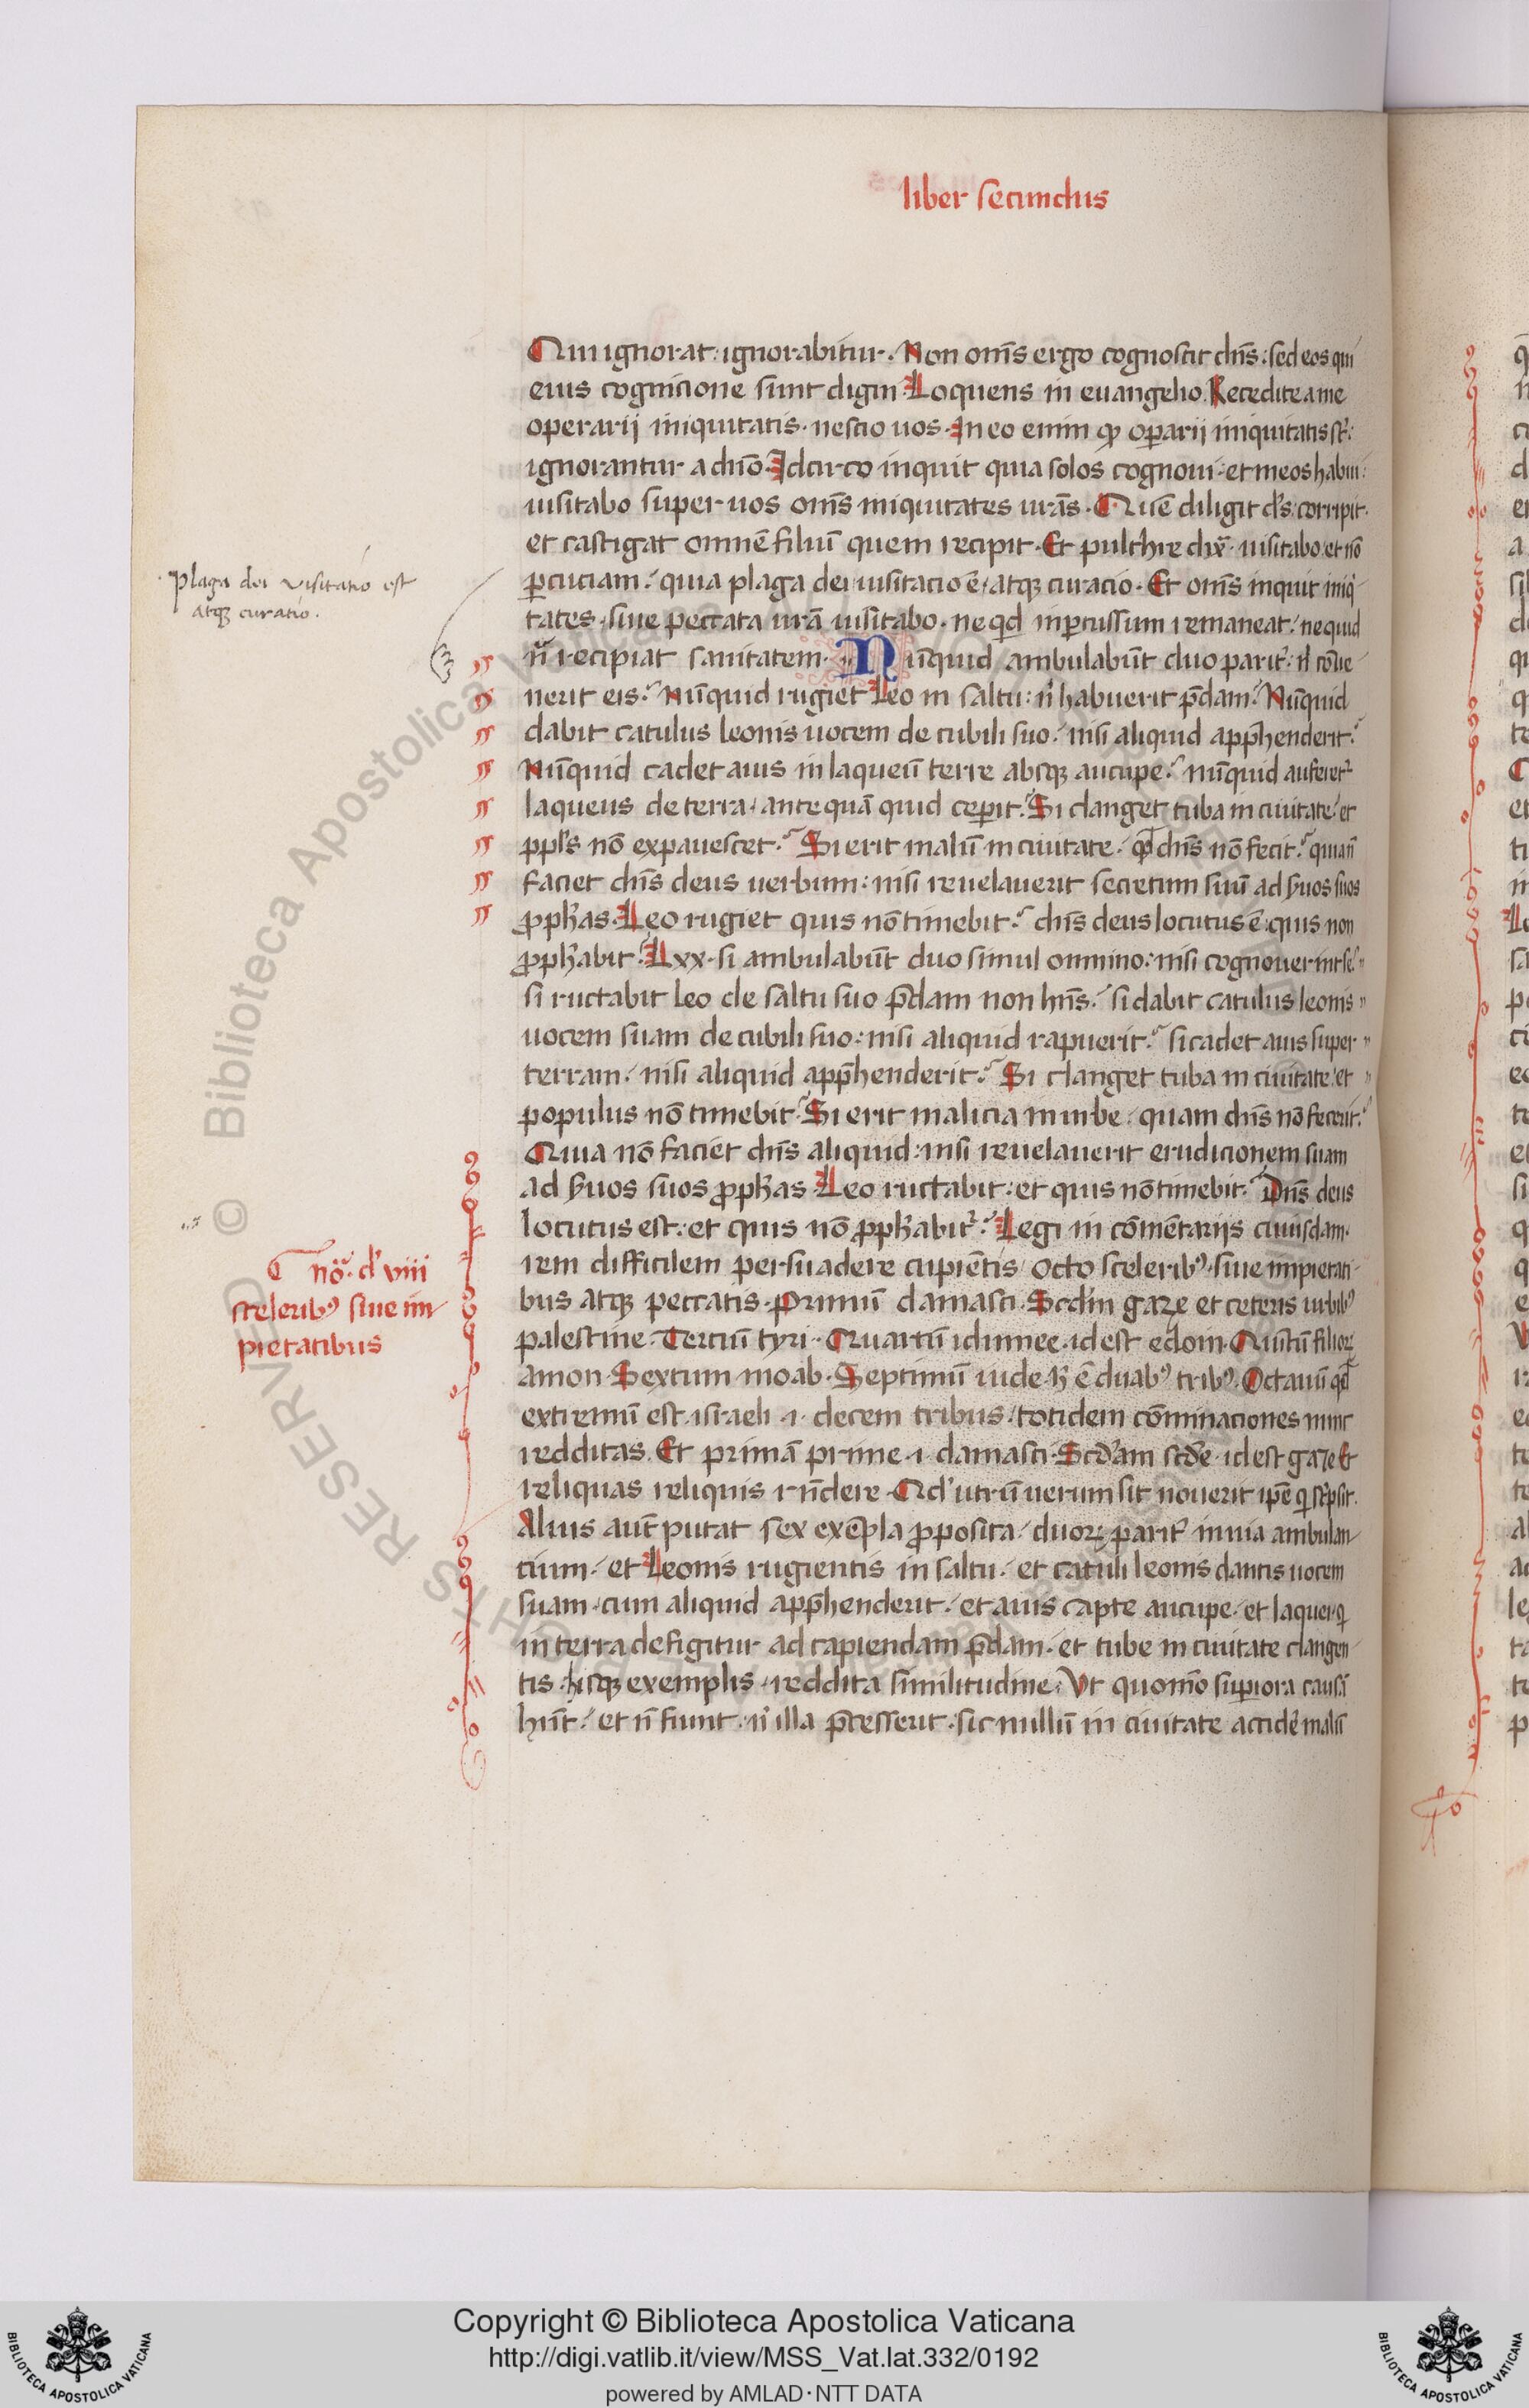 liber secundus
Qui ignorat: ignorabitur. Non om̄s ergo cognoscit dn̄s: sed eos qui
eius cognicione sunt digni. Loquens in euangelio. Recedite a me
operarij iniquitatis. nescio uos. In eo enim ꝙ oꝑarij iniquitatis st̄:
ignorantur a dn̄o. Idcirco inquit quia solos cognoui. et meos habui:
uisitabo super uos om̄s iniquitates ur̄as. Quē diligit ds̄: corripit.
et castigat omnē filiū quem recipit. Et pulchre dix̄. uisitabo: et nō
ꝑcuciam: quia plaga dei uisitacio ē, atqꝫ curacio. Et om̄s inquit iniqi
tates. siue peccata ur̄a uisitabo. ne qd inꝑcussum remaneat: ne quid
n̄ recipiat sanitatem. Nūquid ambulabūt duo parit̄: n̄ cōue
nerit eis? Nūquid rugiet Leo in saltu: n̄ habuerit p̄dam? Nūquid
dabit catulus leonis uocem de cubili suo: nisi aliquid app̄henderit?
Nūquid cadet auis in laqueū terre absqꝫ aucupe? nūquid auferet̄
laqueus de terra. ante quā quid ceꝑit? Si clanget tuba in ciuitate: et
ppl̄s nō expauescet? Si erit malū in ciuitate. qd̄ dn̄s non fecit? quia n̄
faciet dn̄s deus uerbum: nisi reuelauerit secretum suū ad s̄uos suos
ꝓph̄as. Leo rugiet quis nō timebit? dn̄s deus locutus ē: quis non
ꝓph̄abit? Lxx. si ambulabūt duo simul omnino: nisi cognouerint se?
si ructabit leo de saltu suo p̄dam non hn̄s? si dabit catulus leonis
uocem suam de cubili suo: nisi aliquid rapuerit? si cadet auis super
terram. nisi aliquid app̄henderit? Si clanget tuba in ciuitate: et
populus nō timebit? Si erit malicia in urbe. quam dn̄s nō fecerit?
Quia nō faciet dn̄s aliquid: nisi reuelauerit erudicionem suam
ad s̄uos suos ꝓph̄as. Leo ructabit: et quis nō timebit? Dn̄s deus
locutus est: et quis nō ꝓph̄abit̄? Legi in cōmētarijs cuiusdam.
rem difficilem persuadere cupiētis octo scelerib9. siue impietati
bus atqꝫ peccatis. Primū damasci. Scdm̄ gaze et ceteris urbib9
palestine. Terciū tyri. Quartū idumee. id est edom. Quītū filioꝝ
amon. Sextum moab. Septimū iude. h̄ ē duab9 trib9. Octauū qd̄
extremū est israeli .i. decem tribus. totidem cōminaciones nunc
redditas. Et primā prime .i. damasci. Scd̄am scd̄e. id est gaze. Et
reliquas reliquis rn̄dere. Qd̄ utrū uerum sit nouerit ip̄e q sc̄psit.
Alius aut̄ putat sex exēpla ꝓposita. duoꝝ parit̄ in uia ambulan
cium. et Leonis rugientis in saltu. et catuli leonis dantis uocem
suam. cum aliquid app̄henderit. et auis capte aucupe. et laquei. q
in terra defigitur ad capiendam p̄dam. et tube in ciuitate clangen
tis. hisqꝫ exemplis. reddita similitudine. Ut quomō suꝑiora causā
hn̄t. et n̄ fiunt. n̄ illa p̄cesserit. sic nullū in ciuitate accidē malū
plaga dei visitatio est
atqꝫ curatio.
nō. d' viii
scelerib9 siue im
pietatibus
© Biblioteca Apostolica Vaticana
Copyright © Biblioteca Apostolica Vaticana
http://digi.vatlib.it/view/MSS_Vat.lat.332/0192
powered by AMLAD·NTT DATA
BIBLIOTECA APOSTOLICA VATICANA
BIBLIOTECA APOSTOLICA VATICANA